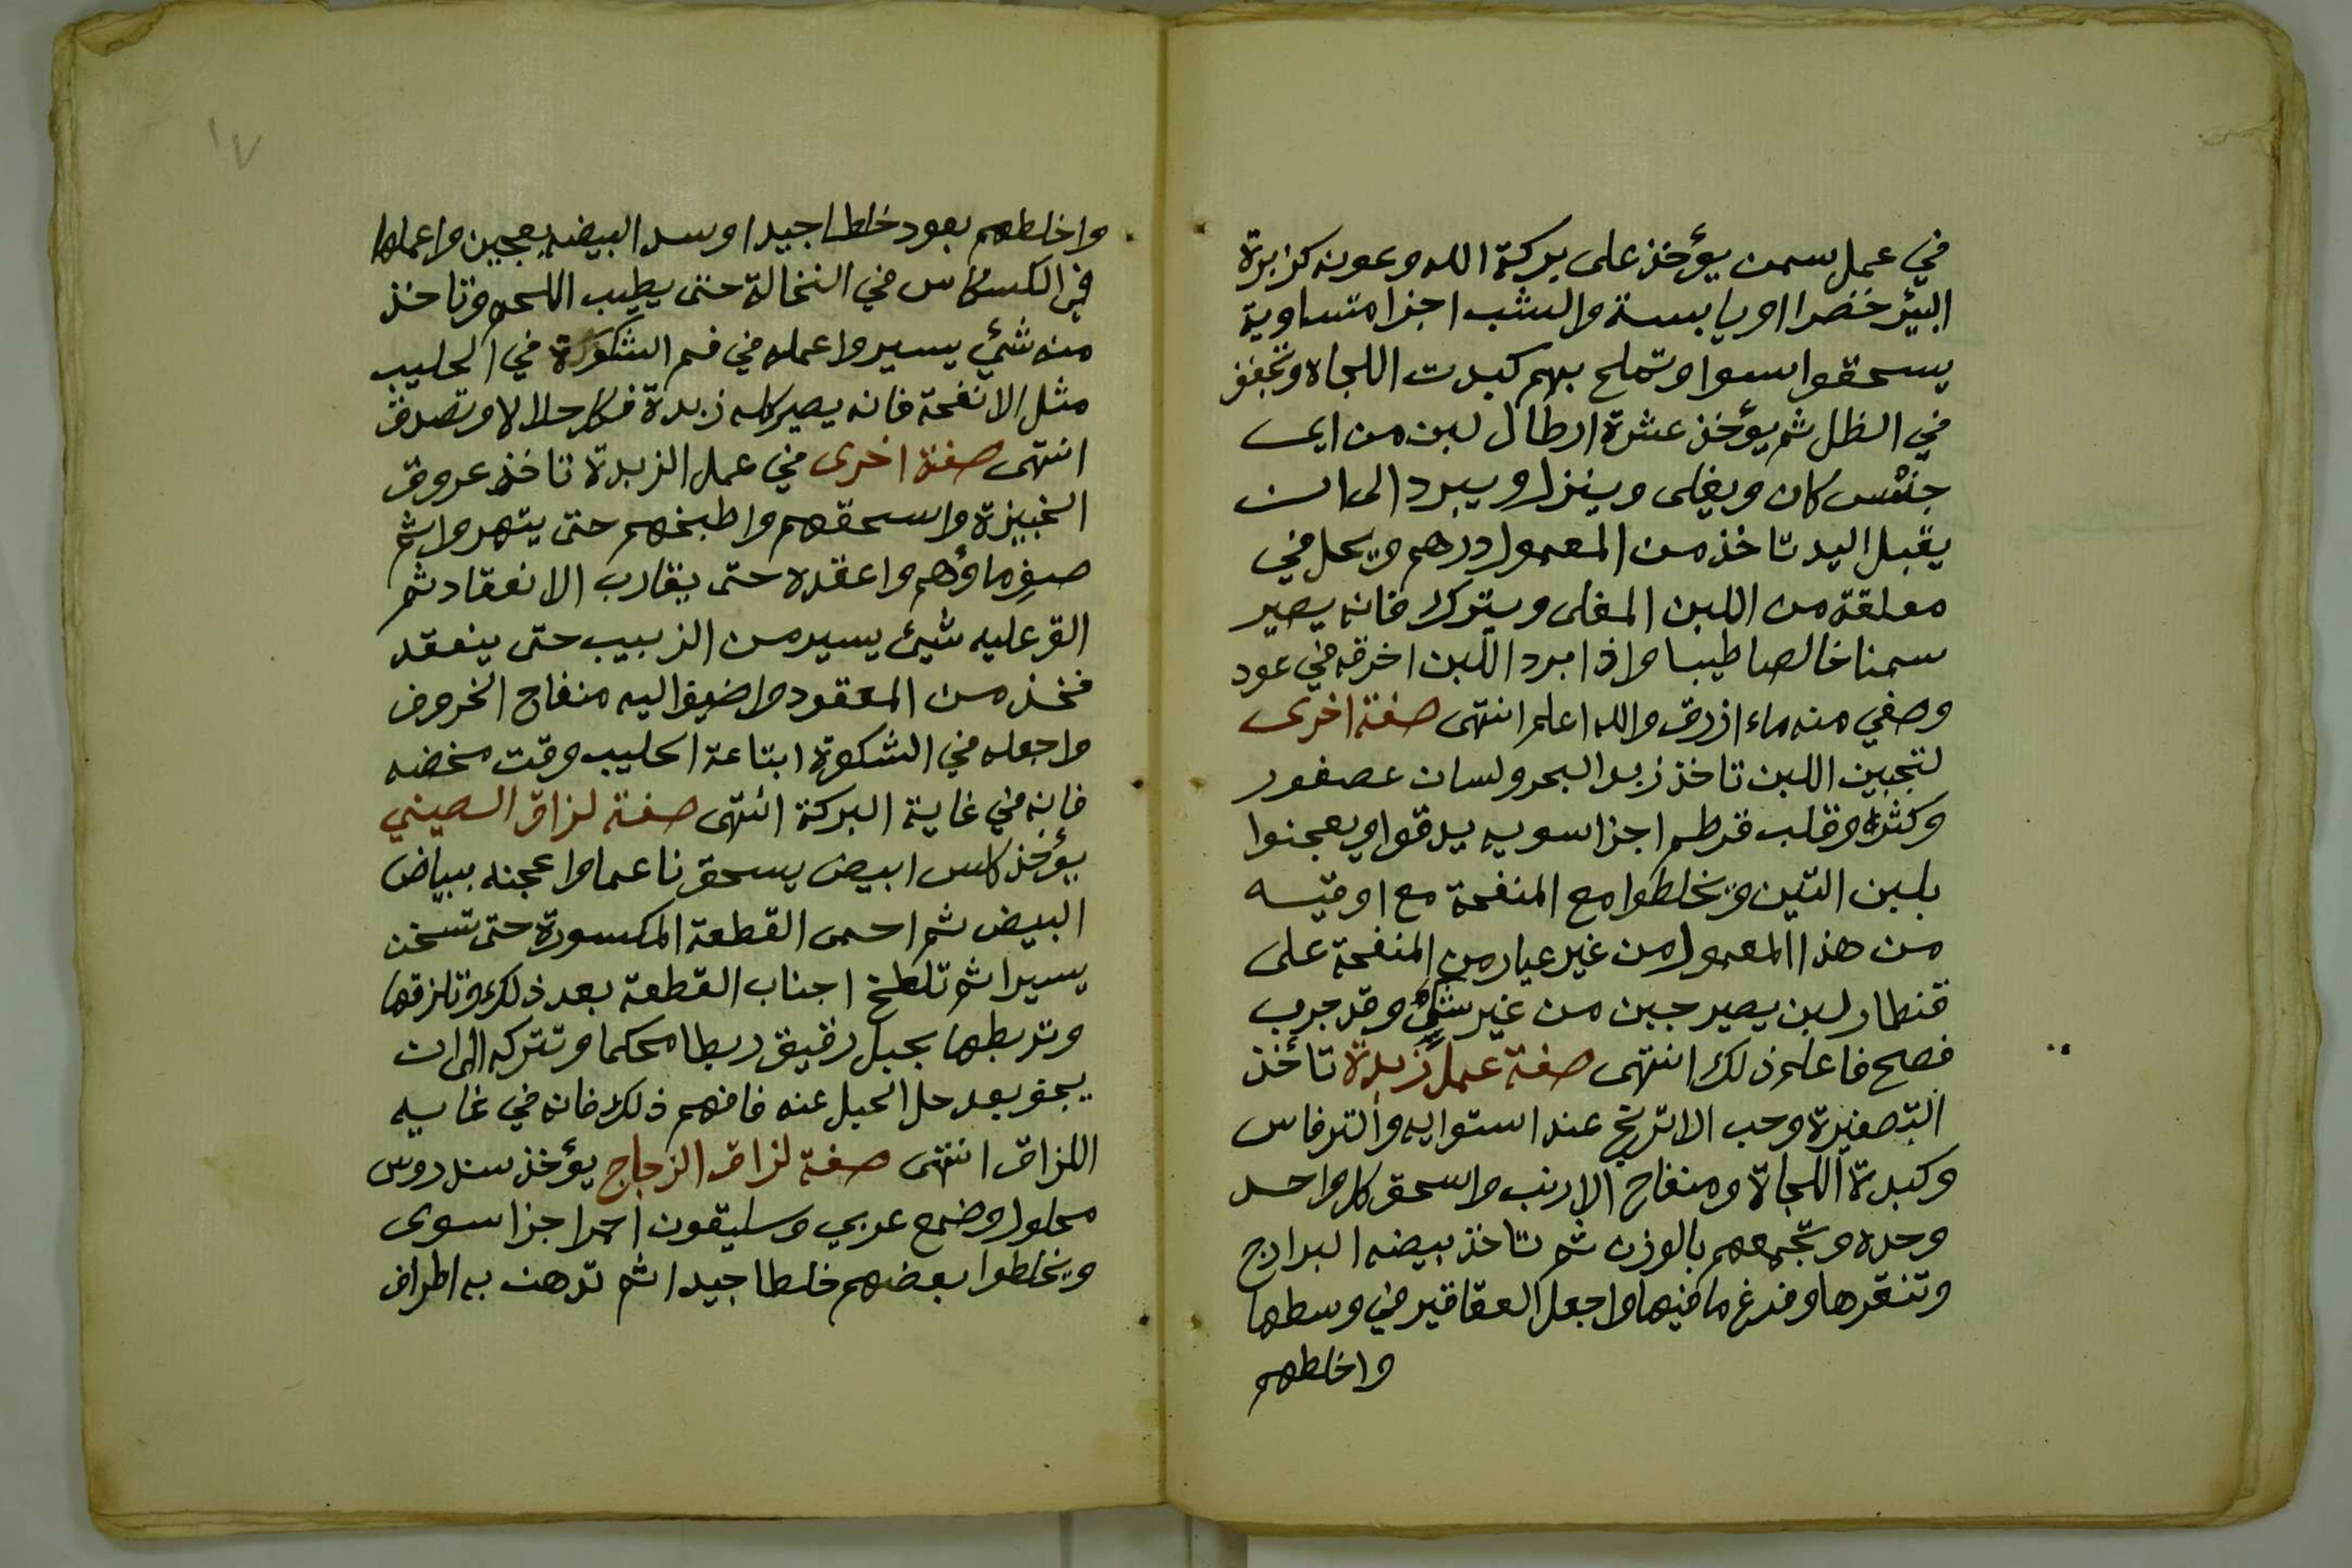 في عمل سمن يؤخذ على بركة الله وعونه كزبرة
البئر خضرا او يابسة والشب اجزا متساوية
يسحقوا سوا وتملح بهم كبدت اللجاة وتجفف
في الظل ثم يؤخذ عشرة ارطال لبن من اى
جنس كان ويغلى وينزل ويبرد الى ان
يقبل اليد تاخذ من المعمول درهم ويحل في
معلقة من اللبن المغلى ويترك فانه يصير
سمنا خالصا طيبا واذا برد اللبن اخرقه في عود
وصفي منه ماء ازرق والله اعلم انتهى صفة اخرى
لتجبين اللبن تاخذ زبد البحر ولسان عصفور
وكثره وقلب قرطم اجزا سويه يدقوا ويعجنوا
بلبن التين ويخلطوا مع المنفحة مع اوقيه
من هذا المعمول من غير عيار من المنفحة على
قنطار لبن يصير جبن من غير شك وقد جرب
فصح فاعلم ذلك انتهى صفة عمل زبدة تأخذ
التصفيرة وحب الاترنج عند استوايه والترفاس
وكبدة اللجاة ومنفاح الارنب واسحق كل واحد
وحده وتجمعهم بالوزن ثم تاخذ بيضه البدارج
وتنقرها وفرغ ما فيها واجعل العقاقير في وسطها
واخلطهم
١٧
واخلطهم بعود خلطا جيدا وسد البيضه بعجين واعملها
في الكسكاس في النخالة حتى يطيب اللحم وتاخذ
منه شئ يسير واعمله في فم الشكوة في الحليب
مثل الانفحة فانه يصير كله زبدة فكل حلالا وتصدق
انتهى صفة اخرى في عمل الزبدة تاخذ عروق
الخبيزة واسحقهم واطبخهم حتى يتهروا ثم
صفى ماؤهم واعقده حتى يقارب الانعقاد ثم
القى عليه شئ يسير من الزبيب حتى ينعقد
فخذ من المعقود واضيف اليه منفاح الخروف
واجعله في الشكوة ابتاعة الحليب وقت مخضه
فانه في غاية البركة انتهى صفة لزاق الصيني
يؤخذ كلس ابيض يسحق ناعما واعجنه ببياض
البيض ثم احمى القطعة المكسورة حتى تسخن
يسيرا ثم تلطخ اجناب القطعة بعد ذلك وتلزقها
وتربطها بحبل رقيق ربطا محكما وتتركه الى ان
يجف بعد حل الحبل عنه فافهم ذلك فانه في غايه
اللزاق انتهى صفة لزاق الزجاج يؤخذ سندروس
محلول وضمع عربي وسليقون احمر اجزا سوى
ويخلطوا بعضهم خلطا جيدا ثم تدهن به اطراف